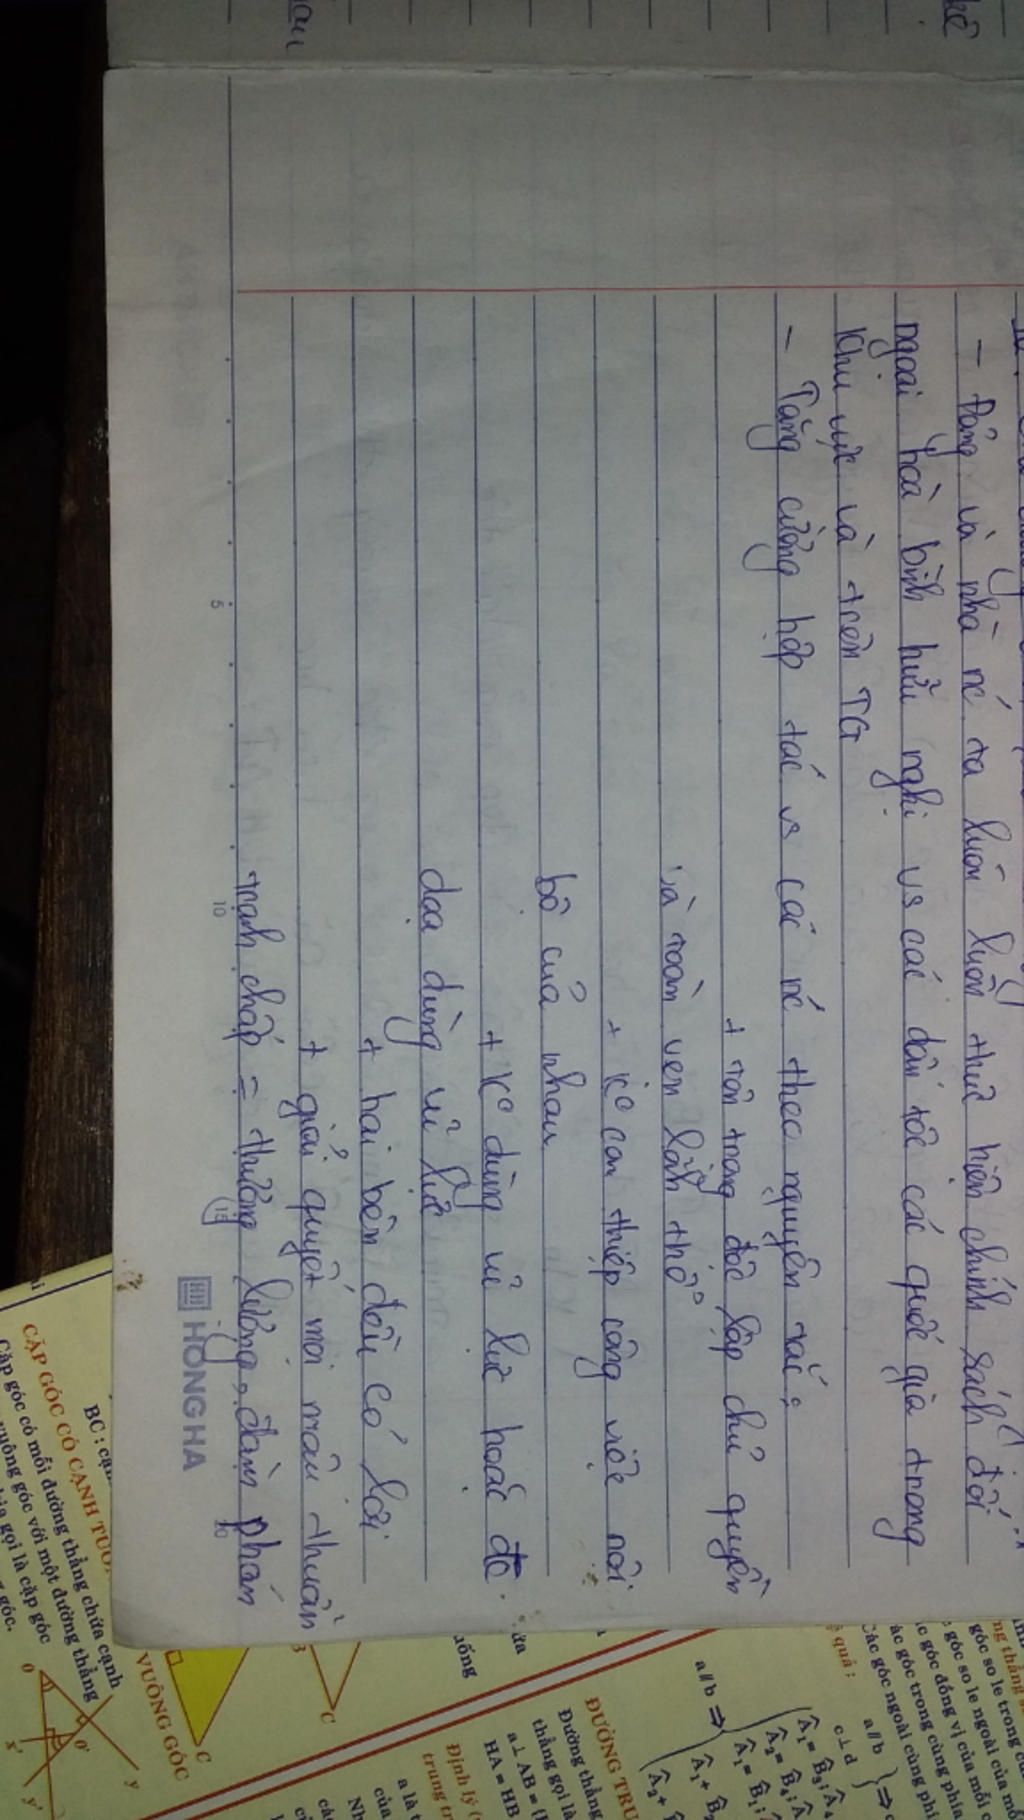 - Đảng và nhà nc ta luôn luôn thực hiện chính sách đối
ngoại hoà bình hữu nghị vs các dân tộc các quốc gia trong
khu vực và trên TG
- Tăng cường hợp tác vs các nc theo nguyên tắc:
+ tôn trọng độc lập chủ quyền
và toàn vẹn lãnh thổ
+ ko can thiệp công việc nội
bộ của nhau
+ ko dùng vũ lực hoặc đe
doạ dùng vũ lực
+ hai bên đều có lợi
+ giải quyết mọi mâu thuẫn
tranh chấp = thương lượng, đàm phán
5
10
15
HONG HA
BC :
CẶP GÓC CÓ CẠNH
Cặp góc có mỗi đường thẳng chứa cạnh
vuông góc với một đường thẳng
gọi là cặp góc
góc.
VUÔNG GÓC
C
C
O
O'
x'
y
y'
ĐƯỜNG TRU
Đường thẳng
thẳng gọi là
a ⊥ AB =
HA = HB
Định lý
trung
a là
của
a // b ⇒
c ⊥ d
a // b
quả :
Các góc ngoài cùng
góc trong cùng
góc đồng vị của mỗi
góc so le ngoài của
góc so le trong